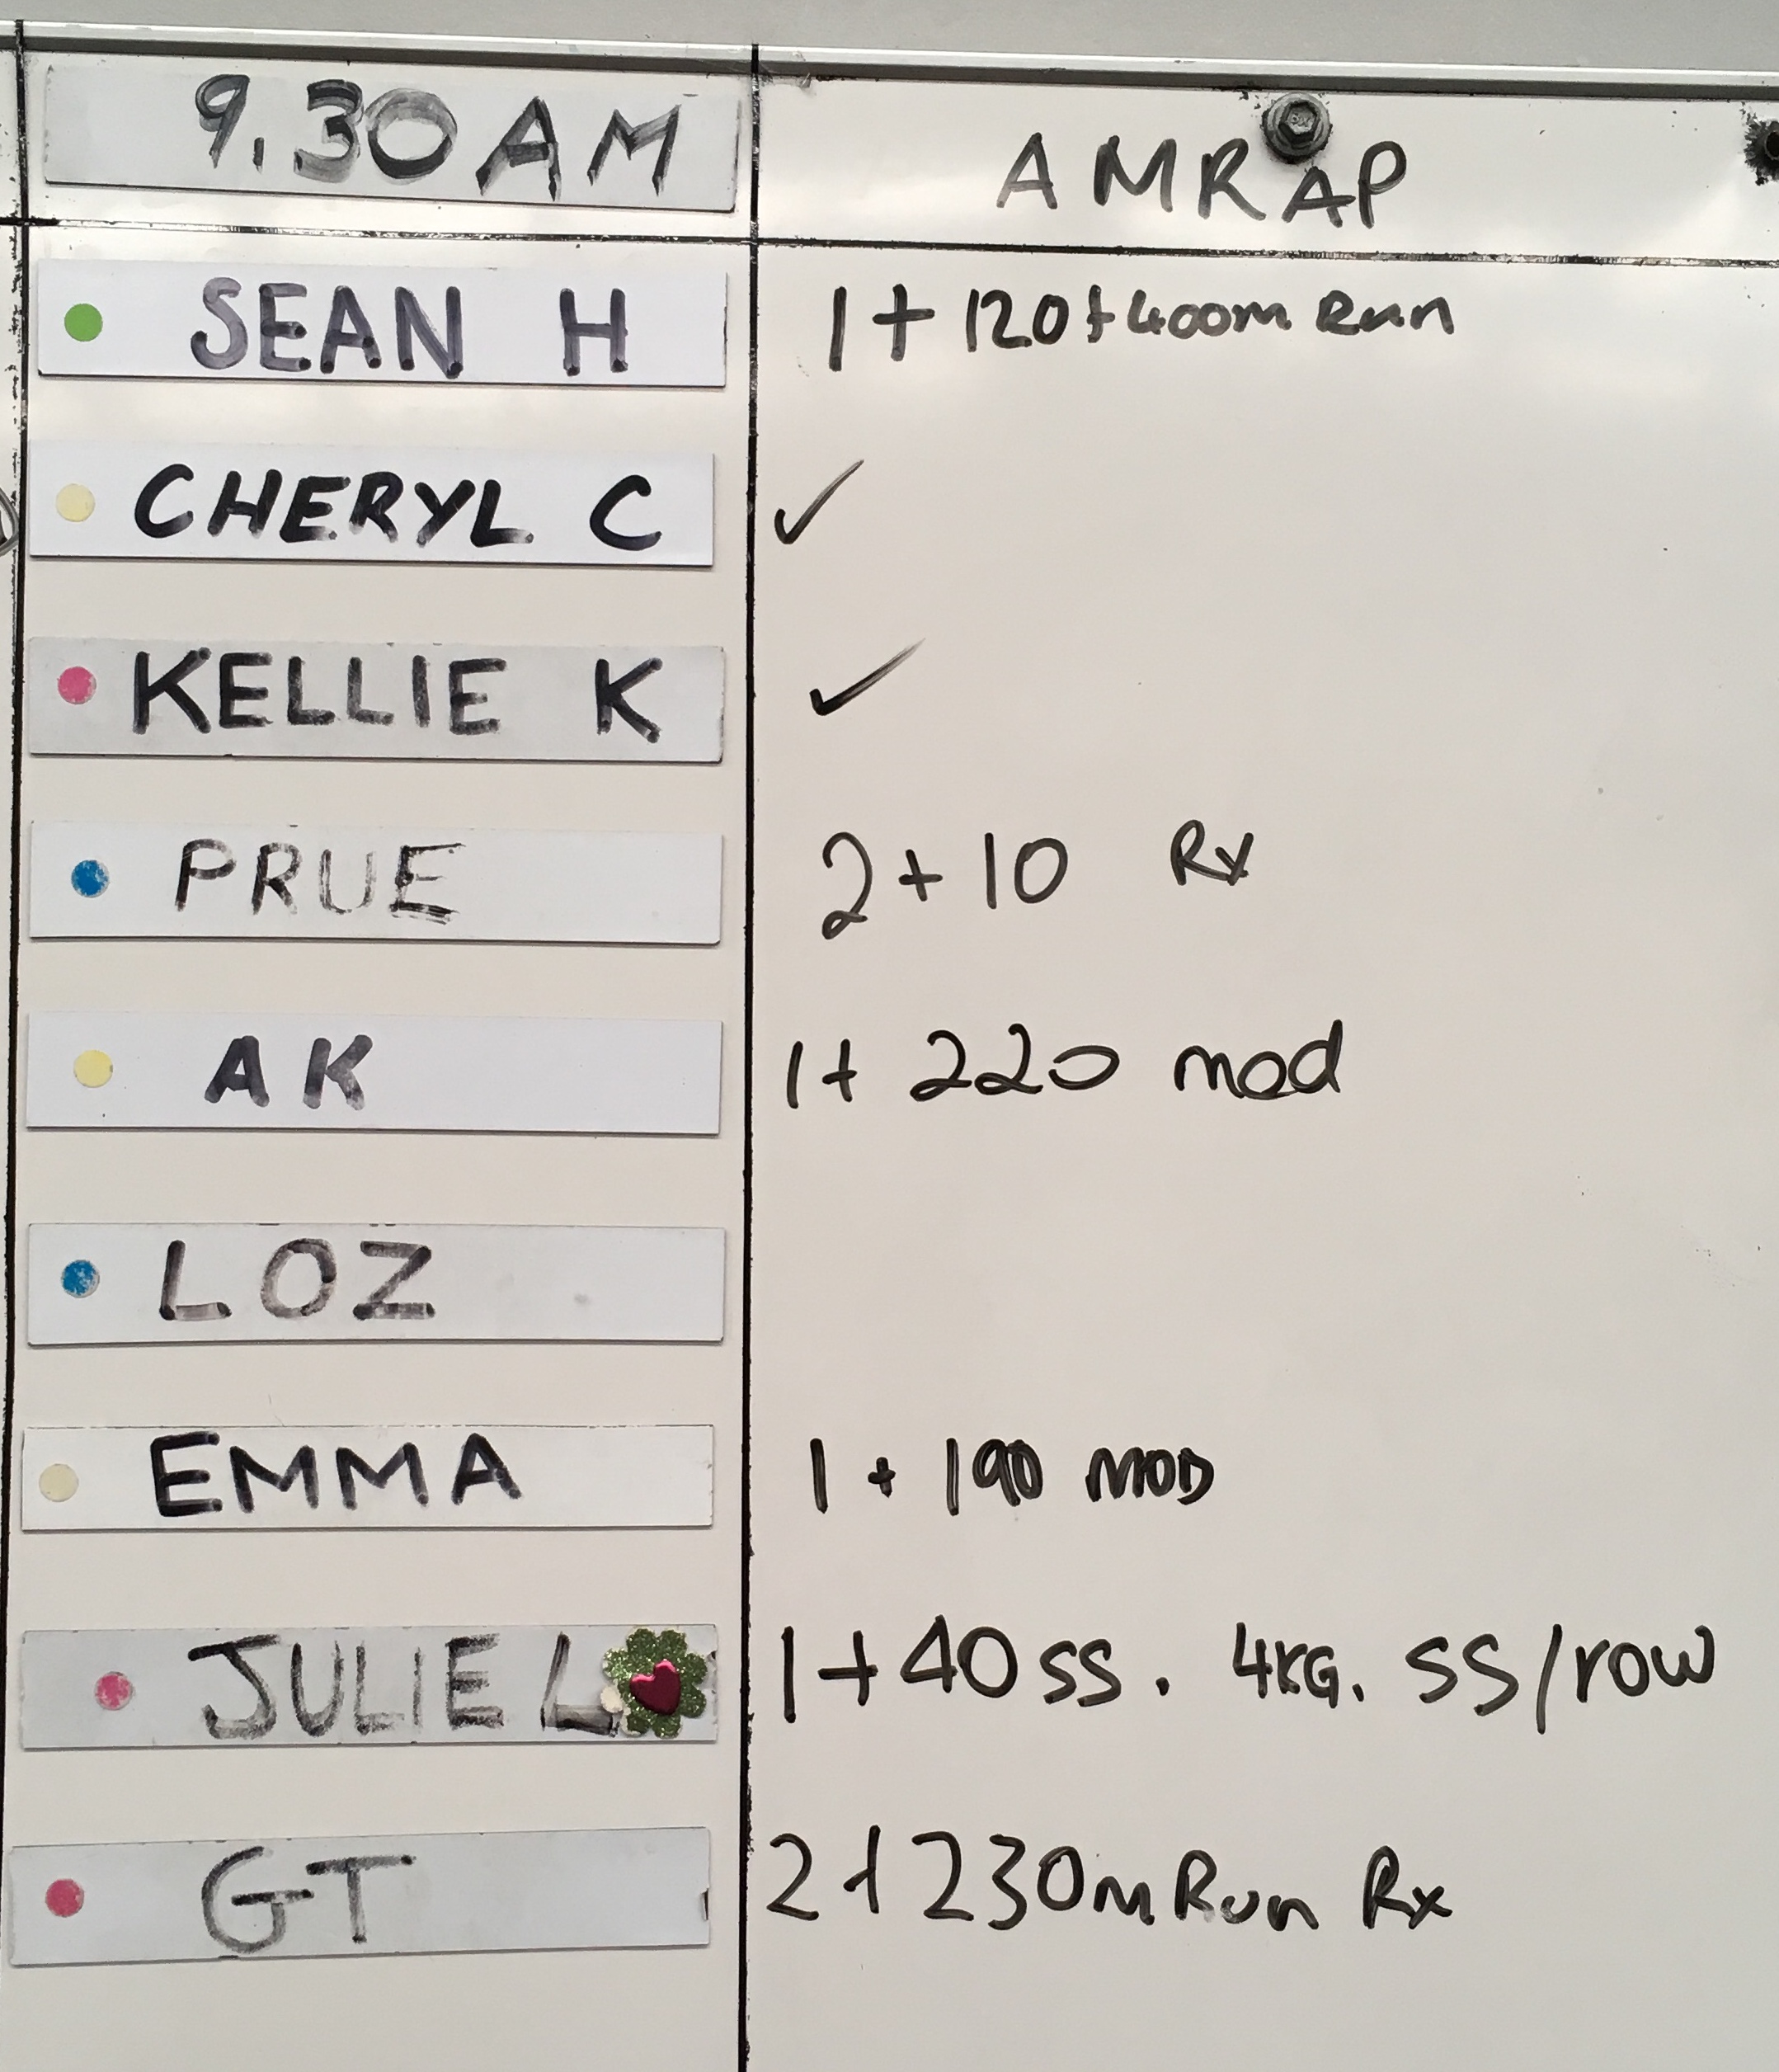 9.30AM AMRAP
SEAN H 1 + 120 + 400m Run
CHERYL C ✓
KELLIE K ✓
PRUE 2 + 10 Rx
AK 1 + 220 mod
LOZ
EMMA 1 + 190 MOD
JULIE L 1 + 40 ss. 4KG. SS/row
GT 2 + 230m Run Rx